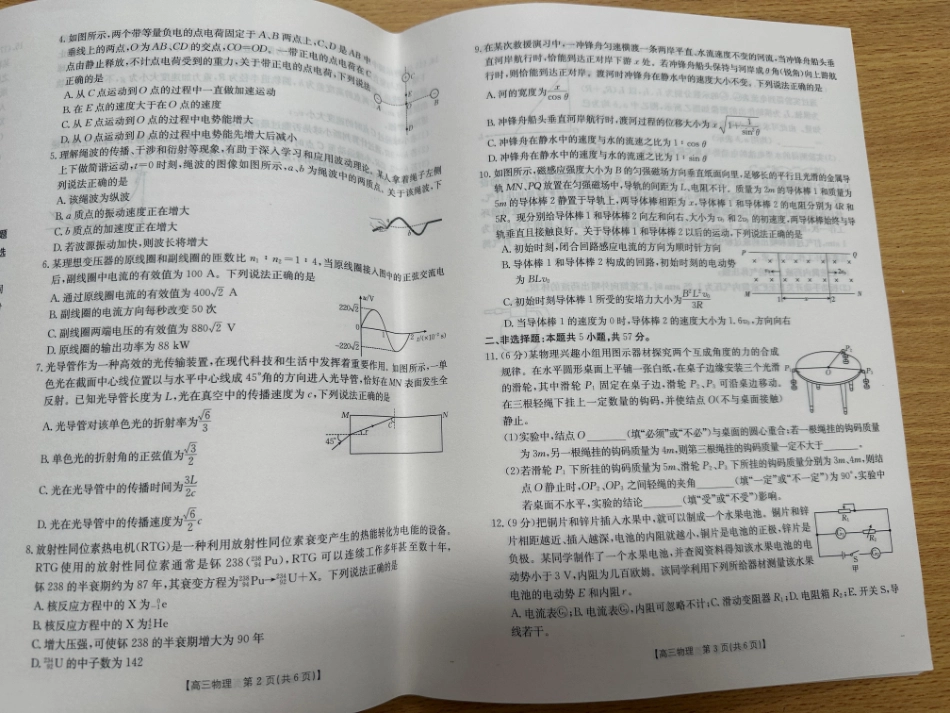 4. 如图所示,两个带等量负电的点电荷固定于 A、B 两点上,C、D 是 AB 中
垂线上的两点,O 为 AB、CD 的交点,CO=OD。一带正电的点电荷在 C
点由静止释放,不计点电荷受到的重力,关于带正电的点电荷,下列说法
正确的是
A. 从 C 点运动到 O 点的过程中一直做加速运动
B. 在 E 点的速度大于在 O 点的速度
C. 从 E 点运动到 O 点的过程中电势能增大
D. 从 O 点运动到 D 点的过程中电势能先增大后减小
5. 理解绳波的传播、干涉和衍射等现象,有助于深入学习和应用波动理论。某人拿着绳子左侧
上下做简谐运动,t=0 时刻,绳波的图像如图所示,a、b 为绳波中的两质点。关于该绳波,下
列说法正确的是
A. 该绳波为纵波
B. a 质点的振动速度正在增大
C. b 质点的加速度正在增大
D. 若波源振动加快,则波长将增大
6. 某理想变压器的原线圈和副线圈的匝数比 n₁:n₂=1:4,当原线圈接入图中的正弦交流电
后,副线圈中电流的有效值为 100 A。下列说法正确的是
A. 通过原线圈电流的有效值为 400√2 A
B. 副线圈的电流方向每秒改变 50 次
C. 副线圈两端电压的有效值为 880√2 V
D. 原线圈的输出功率为 88 kW
u/V
220√2
0
-220√2
7. 光导管作为一种高效的光传输装置,在现代科技和生活中发挥着重要作用。如图所示,一单
色光在截面中心线位置以与水平中心线成 45°角的方向进入光导管,恰好在 MN 表面发生全
反射。已知光导管长度为 L,光在真空中的传播速度为 c,下列说法正确的是
A. 光导管对该单色光的折射率为√6/3
B. 单色光的折射角的正弦值为√3/2
C. 光在光导管中的传播时间为3L/2c
D. 光在光导管中的传播速度为√6/2 c
M
N
45°
C
8. 放射性同位素热电机(RTG)是一种利用放射性同位素衰变产生的热能转化为电能的设备。
RTG 使用的放射性同位素通常是钚 238(²³⁸₉₄Pu),RTG 可以连续工作多年甚至数十年,
钚 238 的半衰期约为 87 年,其衰变方程为²³⁸₉₄Pu→²³⁴₉₂U+X。下列说法正确的是
A. 核反应方程中的 X 为⁰₋₁e
B. 核反应方程中的 X 为⁴₂He
C. 增大压强,可使钚 238 的半衰期增大为 90 年
D. ²³⁴₉₂U 的中子数为 142
【高三物理 第 2 页(共 6 页)】
9. 在某次救援演习中,一冲锋舟匀速横渡一条两岸平直、水流速度不变的河流,当冲锋舟船头垂
直河岸航行时,恰能到达正对岸下游 x 处。若冲锋舟船头保持与河岸成 θ 角(锐角)向上游航
行时,则恰能到达正对岸。渡河时冲锋舟在静水中的速度大小不变。下列说法正确的是
A. 河的宽度为 x/cos θ
B. 冲锋舟船头垂直河岸航行时,渡河过程的位移大小为 x√(1+1/sin²θ)
C. 冲锋舟在静水中的速度与水的流速之比为 1:cos θ
D. 冲锋舟在静水中的速度与水的流速之比为 1:sin θ
10. 如图所示,磁感应强度大小为 B 的匀强磁场方向垂直纸面向里,足够长的平行且光滑的金属导
轨 MN、PQ 放置在匀强磁场中,导轨的间距为 L、电阻不计。质量为 2m 的导体棒 1 和质量为
5m 的导体棒 2 静置于导轨上,两导体棒相距为 x,导体棒 1 和导体棒 2 的电阻分别为 4R 和
5R。现分别给导体棒 1 和导体棒 2 向左和向右、大小为 v₀ 和 2v₀ 的初速度,两导体棒始终与导
轨垂直且接触良好。关于导体棒 1 和导体棒 2 以后的运动,下列说法正确的是
A. 初始时刻,闭合回路感应电流的方向为顺时针方向
B. 导体棒 1 和导体棒 2 构成的回路,初始时刻的电动势
为 BLv₀
C. 初始时刻导体棒 1 所受的安培力大小为B²L²v₀/3R
D. 当导体棒 1 的速度为 0 时,导体棒 2 的速度大小为 1.6v₀,方向向右
P
Q
M
1
2
N
二、非选择题:本题共 5 小题,共 57 分。
11. (6 分)某物理兴趣小组用图示器材探究两个互成角度的力的合成
规律。在水平圆形桌面上平铺一张白纸,在桌子边缘安装三个光滑
的滑轮,其中滑轮 P₁ 固定在桌子边,滑轮 P₂、P₃ 可沿桌边移动。
在三根轻绳下挂上一定数量的钩码,并使结点 O(不与桌面接触)
静止。
(1)实验中,结点 O______(填“必须”或“不必”)与桌面的圆心重合;若一根绳挂的钩码质量
为 3m,另一根绳挂的钩码质量为 4m,则第三根绳挂的钩码质量一定不大于______。
(2)若滑轮 P₁ 下所挂的钩码质量为 5m,滑轮 P₂、P₃ 下所挂的钩码质量分别为 3m、4m,则结
点 O 静止时,OP₂、OP₃ 之间轻绳的夹角______(填“一定”或“不一定”)为 90°,实验中
若桌面不水平,实验的结论______(填“受”或“不受”)影响。
12. (9 分)把铜片和锌片插入水果中,就可以制成一个水果电池。铜片和锌
片相距越近、插入越深,电池的内阻就越小,铜片是电池的正极,锌片是
负极。某同学制作了一个水果电池,并查阅资料得知该水果电池的电
动势小于 3 V,内阻为几百欧姆。该同学利用下列所给器材测量该水果
电池的电动势 E 和内阻 r。
A. 电流表G₁;B. 电流表G₂,内阻可忽略不计;C. 滑动变阻器 R₁;D. 电阻箱 R₂;E. 开关 S,导
线若干。
R₁
R₂
S
甲
【高三物理 第 3 页(共 6 页)】